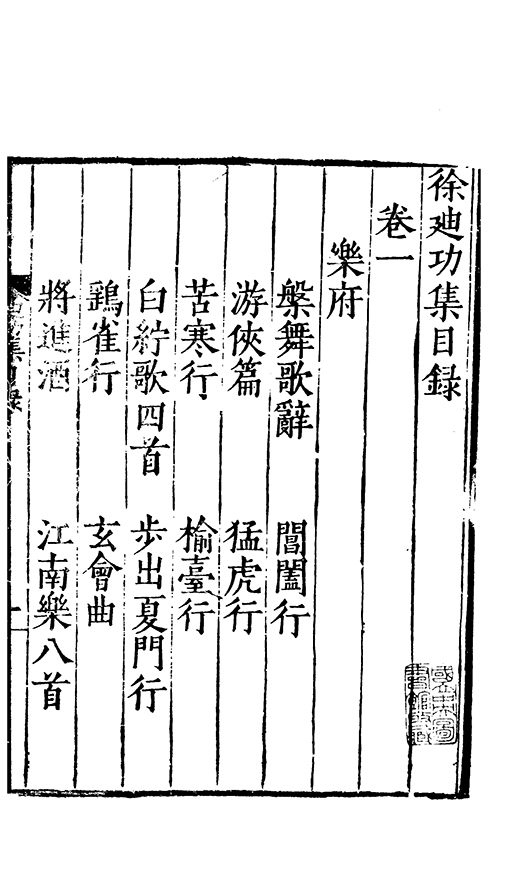 徐廸功集目録
卷一
樂府
槃舞歌辭　閶闔行
游俠篇　猛虎行
苦寒行　榆臺行
白紵歌四首　步出夏門行
鷄雀行　玄會曲
將進酒　江南樂八首
集目録
一
國立中央圖書館收藏